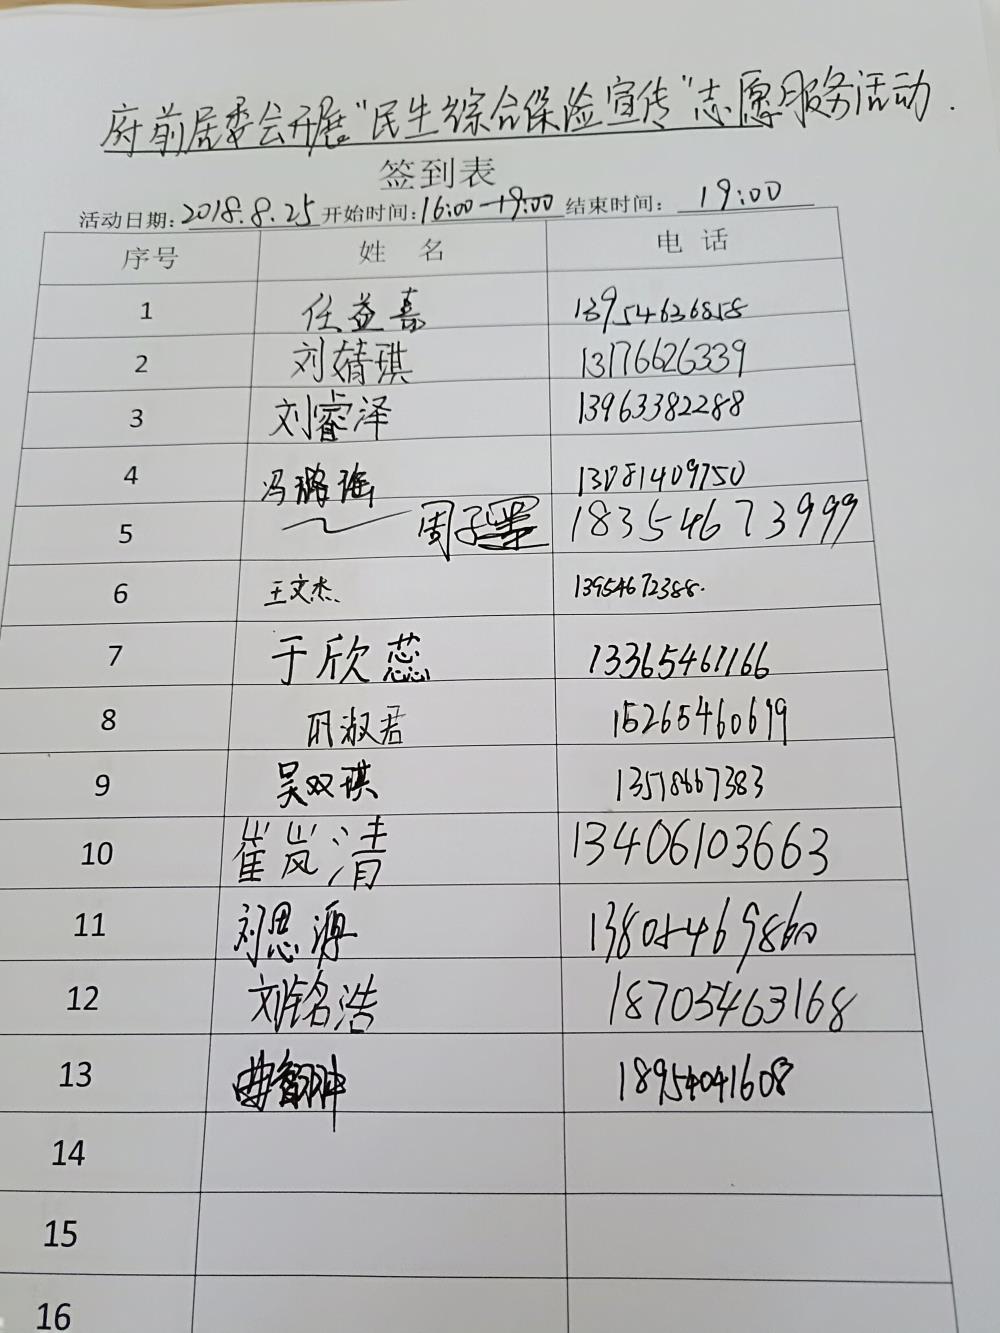 府前居委会开展“民生综合保险宣传”志愿服务活动.
签到表
活动日期: 2018.8.25 开始时间: 16:00-19:00 结束时间: 19:00
序号 姓 名 电 话
1 任益嘉 13954636858
2 刘婧琪 13176626339
3 刘睿泽 13963382288
4 冯璐瑶 13081409750
5 周子 18354673999
6 王文杰 13954672388.
7 于欣蕊 13365461166
8 淑君 15265460699
9 吴双琪
10 崔岚清 13406103663
11 刘思源
12 刘铭浩 18705463168
13 曲 18954041608
14
15
16